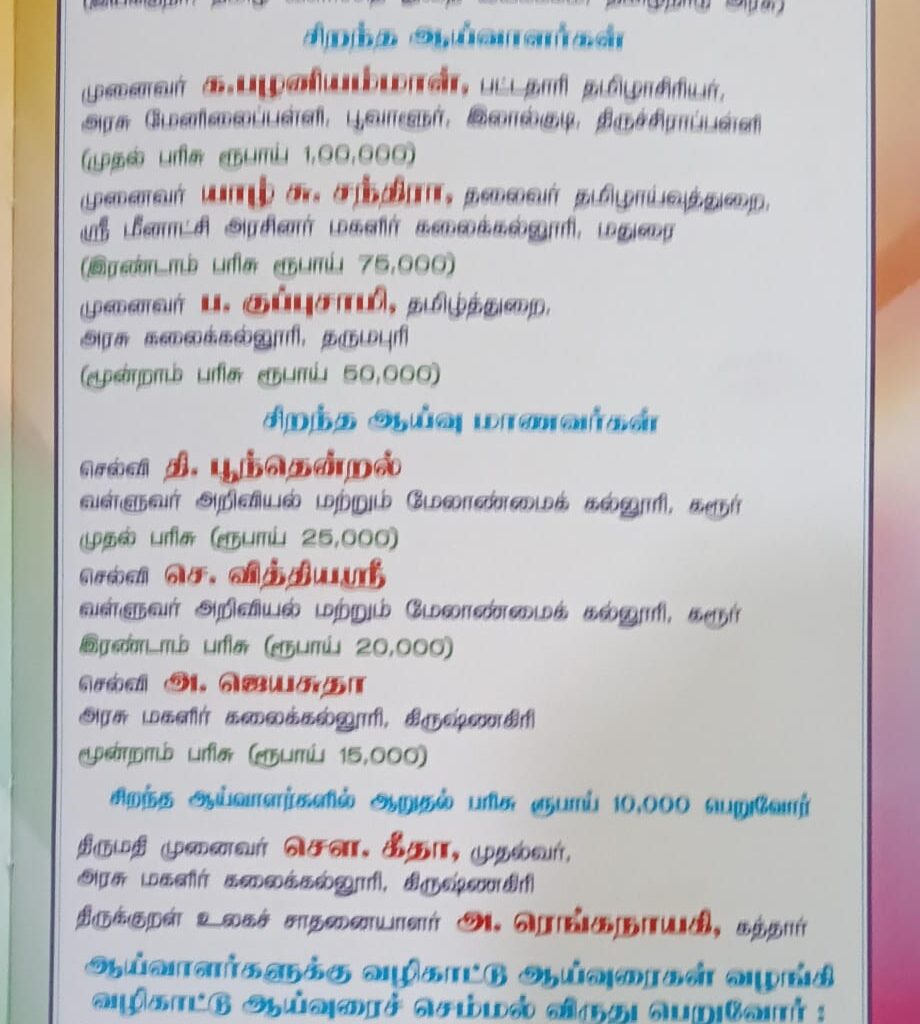 சிறந்த ஆய்வாளர்கள்
முனைவர் க.பழனியம்மாள், பட்டதாரி தமிழாசிரியர்,
அரசு மேனிலைப்பள்ளி, பூவாளூர், இலால்குடி, திருச்சிராப்பள்ளி
(முதல் பரிசு ரூபாய் 1,00,000)
முனைவர் யாழ் சு. சந்திரா, தலைவர் தமிழாய்வுத்துறை,
ஸ்ரீ மீனாட்சி அரசினர் மகளிர் கலைக்கல்லூரி, மதுரை
(இரண்டாம் பரிசு ரூபாய் 75,000)
முனைவர் ப. குப்புசாமி, தமிழ்த்துறை,
அரசு கலைக்கல்லூரி, தருமபுரி
(மூன்றாம் பரிசு ரூபாய் 50,000)
சிறந்த ஆய்வு மாணவர்கள்
செல்வி தி. பூந்தென்றல்
வள்ளுவர் அறிவியல் மற்றும் மேலாண்மைக் கல்லூரி, கரூர்
முதல் பரிசு (ரூபாய் 25,000)
செல்வி செ. வித்தியஸ்ரீ
வள்ளுவர் அறிவியல் மற்றும் மேலாண்மைக் கல்லூரி, கரூர்
இரண்டாம் பரிசு (ரூபாய் 20,000)
செல்வி அ. ஜெயசுதா
அரசு மகளிர் கலைக்கல்லூரி, கிருஷ்ணகிரி
மூன்றாம் பரிசு (ரூபாய் 15,000)
சிறந்த ஆய்வாளர்களில் ஆறுதல் பரிசு ரூபாய் 10,000 பெறுவோர்
திருமதி முனைவர் சௌ. கீதா, முதல்வர்,
அரசு மகளிர் கலைக்கல்லூரி, கிருஷ்ணகிரி
திருக்குறள் உலகச் சாதனையாளர் அ. ரெங்கநாயகி, கத்தார்
ஆய்வாளர்களுக்கு வழிகாட்டு ஆய்வுரைகள் வழங்கி
வழிகாட்டு ஆய்வுரைச் செம்மல் விருது பெறுவோர் :